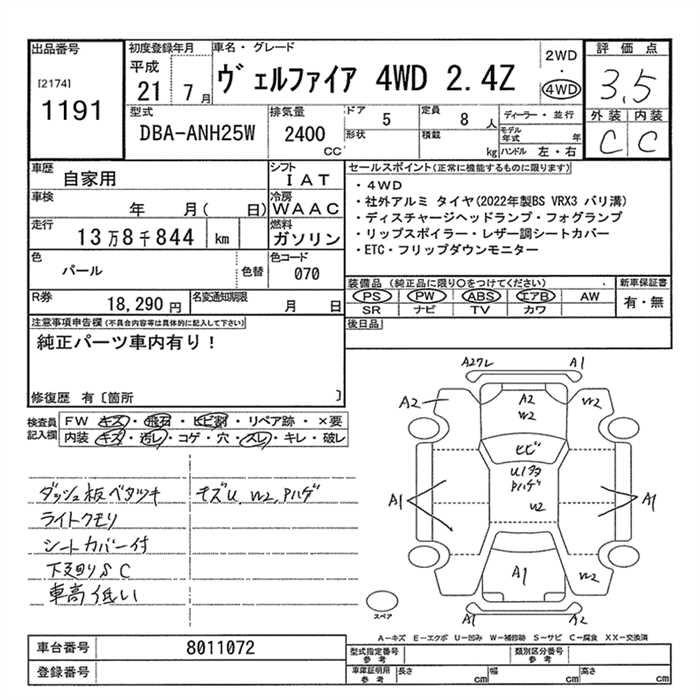 出品番号
[2174]
1191
初度登録年月
平成
21 7月
車名・グレード
ヴェルファイア 4WD 2.4Z
2WD
・
4WD
評価点
3.5
外装 内装
C C
型式
DBA-ANH25W
排気量
2400
CC
ドア
5
定員
8 人
形状
積載
kg
ディーラー・並行
モデル年式 年
ハンドル 左・右
車歴
自家用
シフト
IAT
車検
年 月( 日)
冷房
WAAC
走行
13万8千844 km
燃料
ガソリン
色
パール
色替
色コード
070
R券
18,290 円
名変通知期限
月 日
セールスポイント(正常に機能するものに限ります)
・4WD
・社外アルミ タイヤ(2022年製BS VRX3 バリ溝)
・ディスチャージヘッドランプ・フォグランプ
・リップスポイラー・レザー調シートカバー
・ETC・フリップダウンモニター
装備品 (純正品に限り○をつけてください)
PS PW ABS エアB AW
SR ナビ TV カワ
新車保証書
有・無
後日品
注意事項申告欄(不具合内容等は具体的に記入して下さい)
純正パーツ車内有り!
修復歴 有〔箇所 〕
検査員記入欄
FW キズ・飛石・ヒビ割・リペア跡・×要
内装 キズ・汚レ・コゲ・穴・スレ・キレ・破レ
ダッシュ板ベタツキ
ライトクモリ
シートカバー付
下廻りSC
車高低い
モズU、W2、Pハゲ
A27レ A1
A2 A2 W2 W2
ヒビ
Pハゲ
U2
A1 A1
A1 W2
A2 A2
スペア
A-キズ E-エクボ U-凹み W-補修跡 S-サビ C-腐食 XX-交換済
車台番号
8011072
登録番号
型式指定番号
参考
類別区分番号
参考
車庫証明用
参考
長さ cm 幅 cm 高さ cm